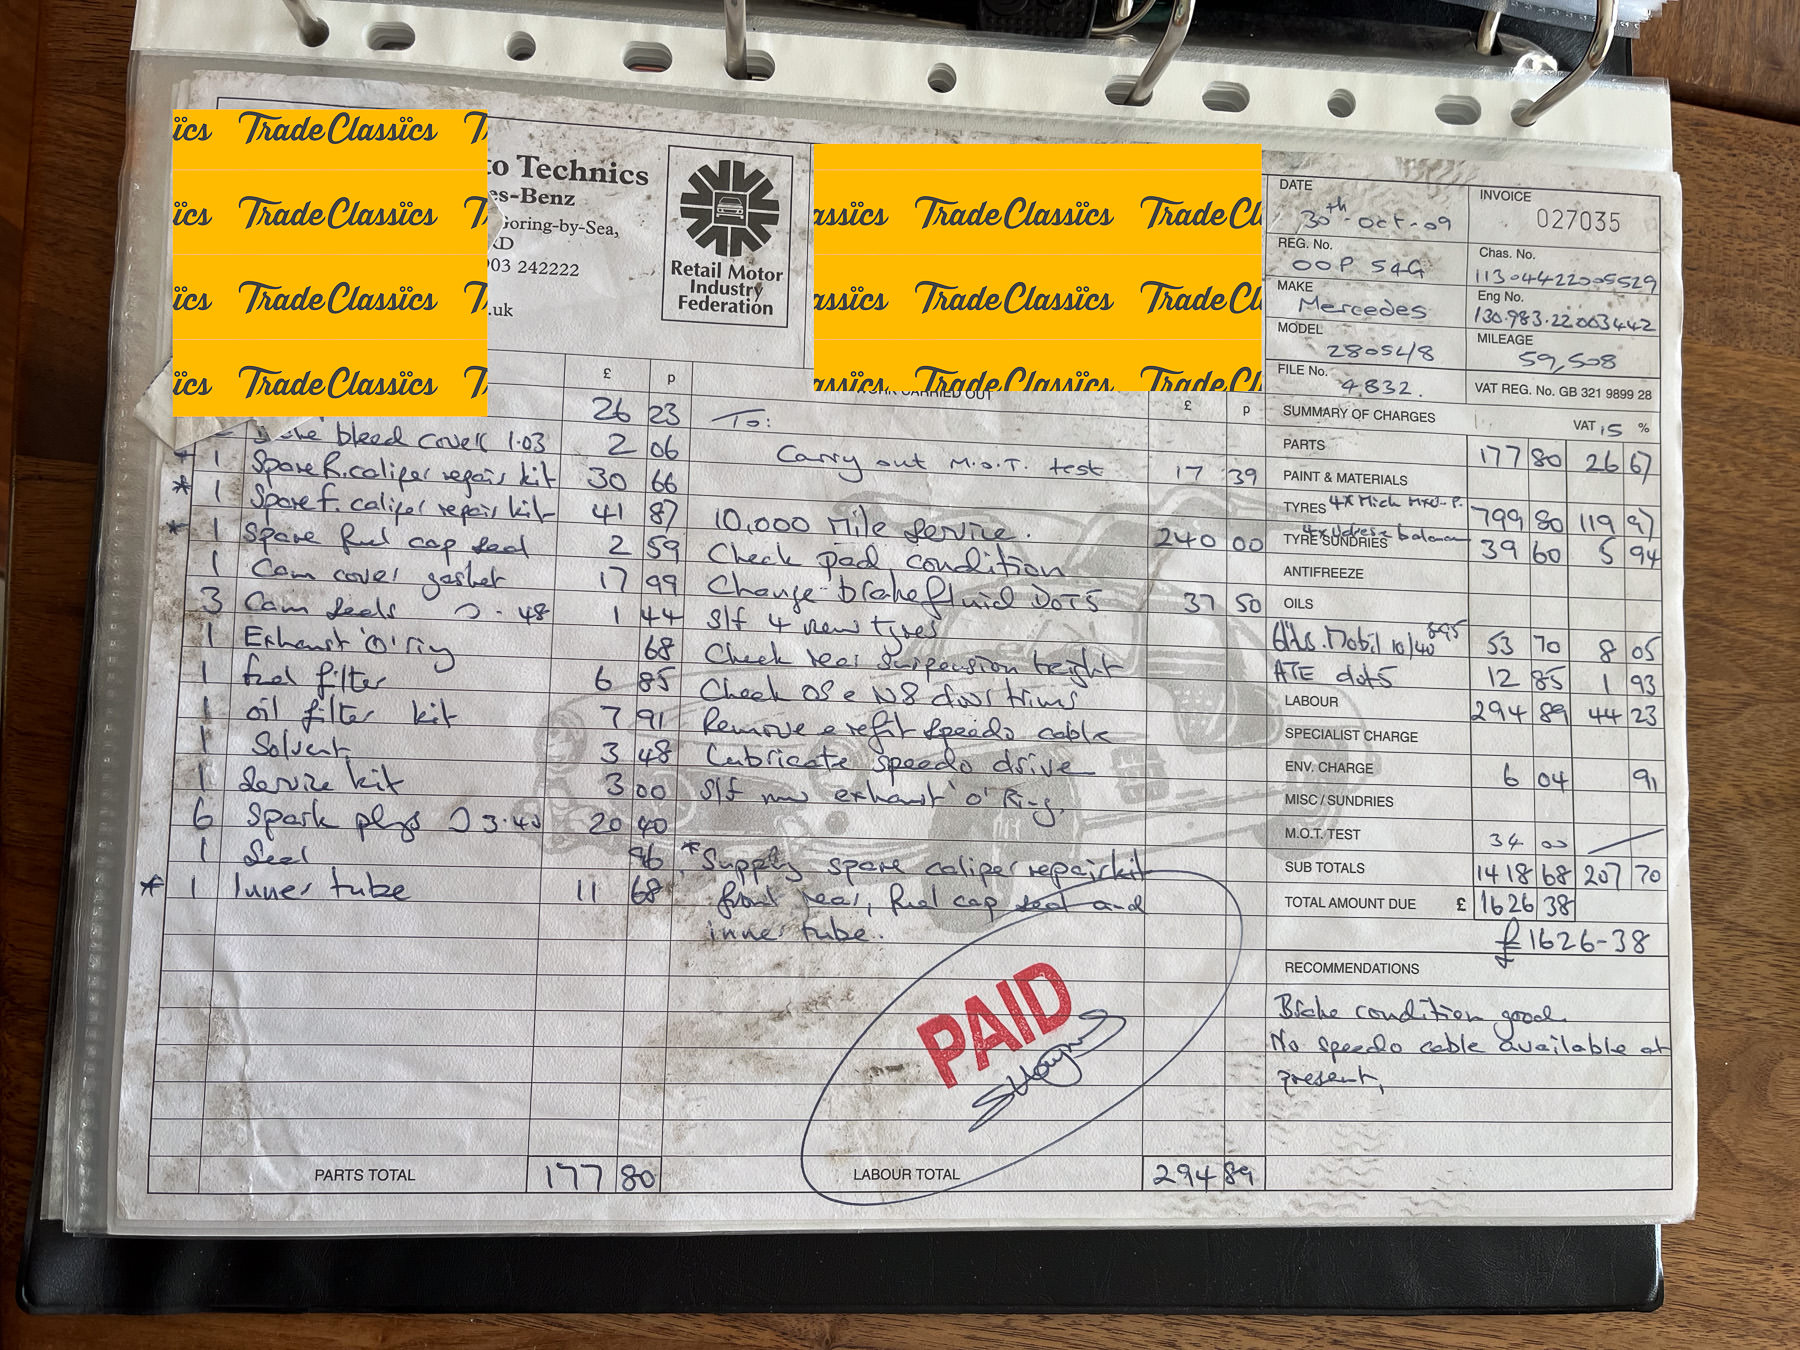 ics Trade Classics T
ics Trade Classics T
ics Trade Classics
ics Trade Classics
to Technics
es-Benz
Goring-by-Sea,
RD
903 242222
.uk
Retail Motor
Industry
Federation
assics Trade Cl
assics Trade Cl
assics Trade Cl
DATE
30th-Oct-09
INVOICE
027035
REG. No.
OOP 54G
Chas. No.
11304422005529
MAKE
Mercedes
Eng No.
130.983.22003442
MODEL
280SL/8
MILEAGE
59,508
FILE No.
4832.
VAT REG. No. GB 321 9899 28
£ p
CARRIED OUT
£ p
26 23
bleed covers 1.03 2 06
* 1 Spare R. caliper repair kit 30 66
* 1 Spare F. caliper repair kit 41 87
* 1 Spare fuel cap seal 2 59
1 Cam cover gasket 17 99
3 Cam seals 48 1 44
1 Exhaust 'O' ring 68
1 fuel filter 6 85
1 oil filter kit 7 91
1 Solvent 3 48
1 Service kit 3 00
6 Spark plugs 3.40 20 40
1 Seal 96
* 1 Inner tube 11 68
PARTS TOTAL 177 80
To:
Carry out M.O.T. test 17 39
10,000 Mile service. 240 00
Check pad condition
Change brake fluid DOT5 37 50
S/f 4 new tyres
Check rear suspension height
Check OS & NS door trims
Remove & refit speedo cable
Lubricate speedo drive
S/f new exhaust 'O' Ring.
* Supply spare caliper repair kit
front rear, fuel cap seal and
inner tube.
PAID
LABOUR TOTAL 294 89
SUMMARY OF CHARGES VAT 15 %
PARTS 177 80 26 67
PAINT & MATERIALS
TYRES 4x Mich 799 80 119 97
TYRE SUNDRIES 39 60 5 94
ANTIFREEZE
OILS
Mobil 10/40 53 70 8 05
ATE dot5 12 85 1 93
LABOUR 294 89 44 23
SPECIALIST CHARGE
ENV. CHARGE 6 04 91
MISC / SUNDRIES
M.O.T. TEST 34 00
SUB TOTALS 1418 68 207 70
TOTAL AMOUNT DUE £ 1626 38
£1626-38
RECOMMENDATIONS
Brake condition good.
No speedo cable available at
present,